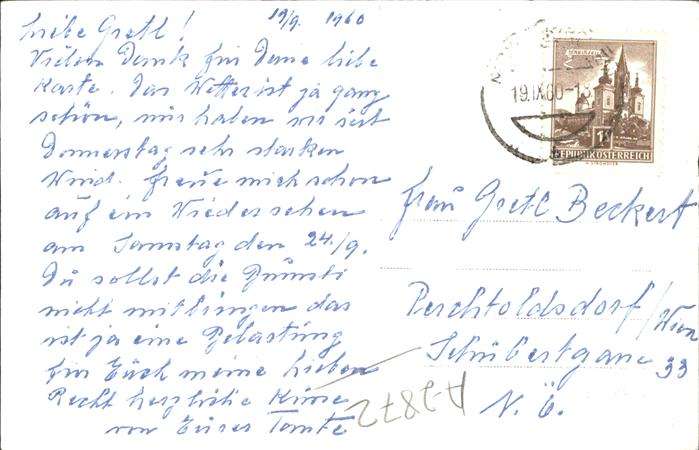 19/9. 1960
Liebe Gretl!
Vielen Dank für Deine liebe
Karte. Das Wetter ist ja ganz
schön, nur haben wir seit
Donnerstag sehr starken
Wind. Freue mich schon
auf ein Wiedersehen
am Samstag den 24./9.
Du sollst die
nicht mitbringen das
ist ja eine Belastung
für Euch meine Lieben
Recht herzliche Küsse
von Eurer Tante
19.IX.60-13
MARIAZELL
1S
REPUBLIK ÖSTERREICH
Frau Gretl Beckert
Perchtoldsdorf/Wien
Schubertgasse 33
N.Ö.
A2872